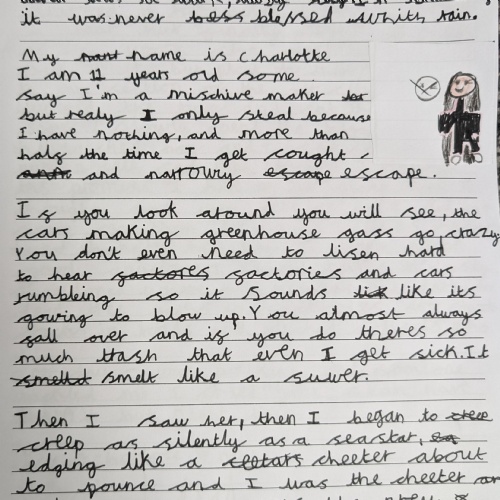 it was never bess blessed whith rain.
My name is charlotte
I am 11 years old some
say I'm a mischive maker
but realy I only steal because
I have nothing, and more than
half the time I get cought
and narrowry escape escape.
If you look around you will see, the
cars making greenhouse gass go crazy.
You don't even need to lisen hard
to hear factores factories and cars
rumbleing so it sounds like its
gowing to blow up. You almost always
fall over and if you do theres so
much trash that even I get sick. It
smelt smelt like a suwer.
Then I saw her, then I began to
creep as silently as a seastar,
edging like a cheeter about
to pounce and I was the cheeter